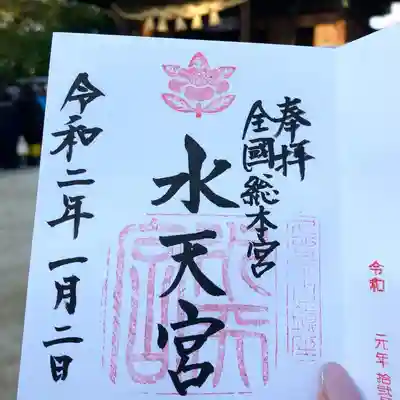 奉拝
全國総本宮
水天宮
令和二年一月二日
令和 元年 拾弐月